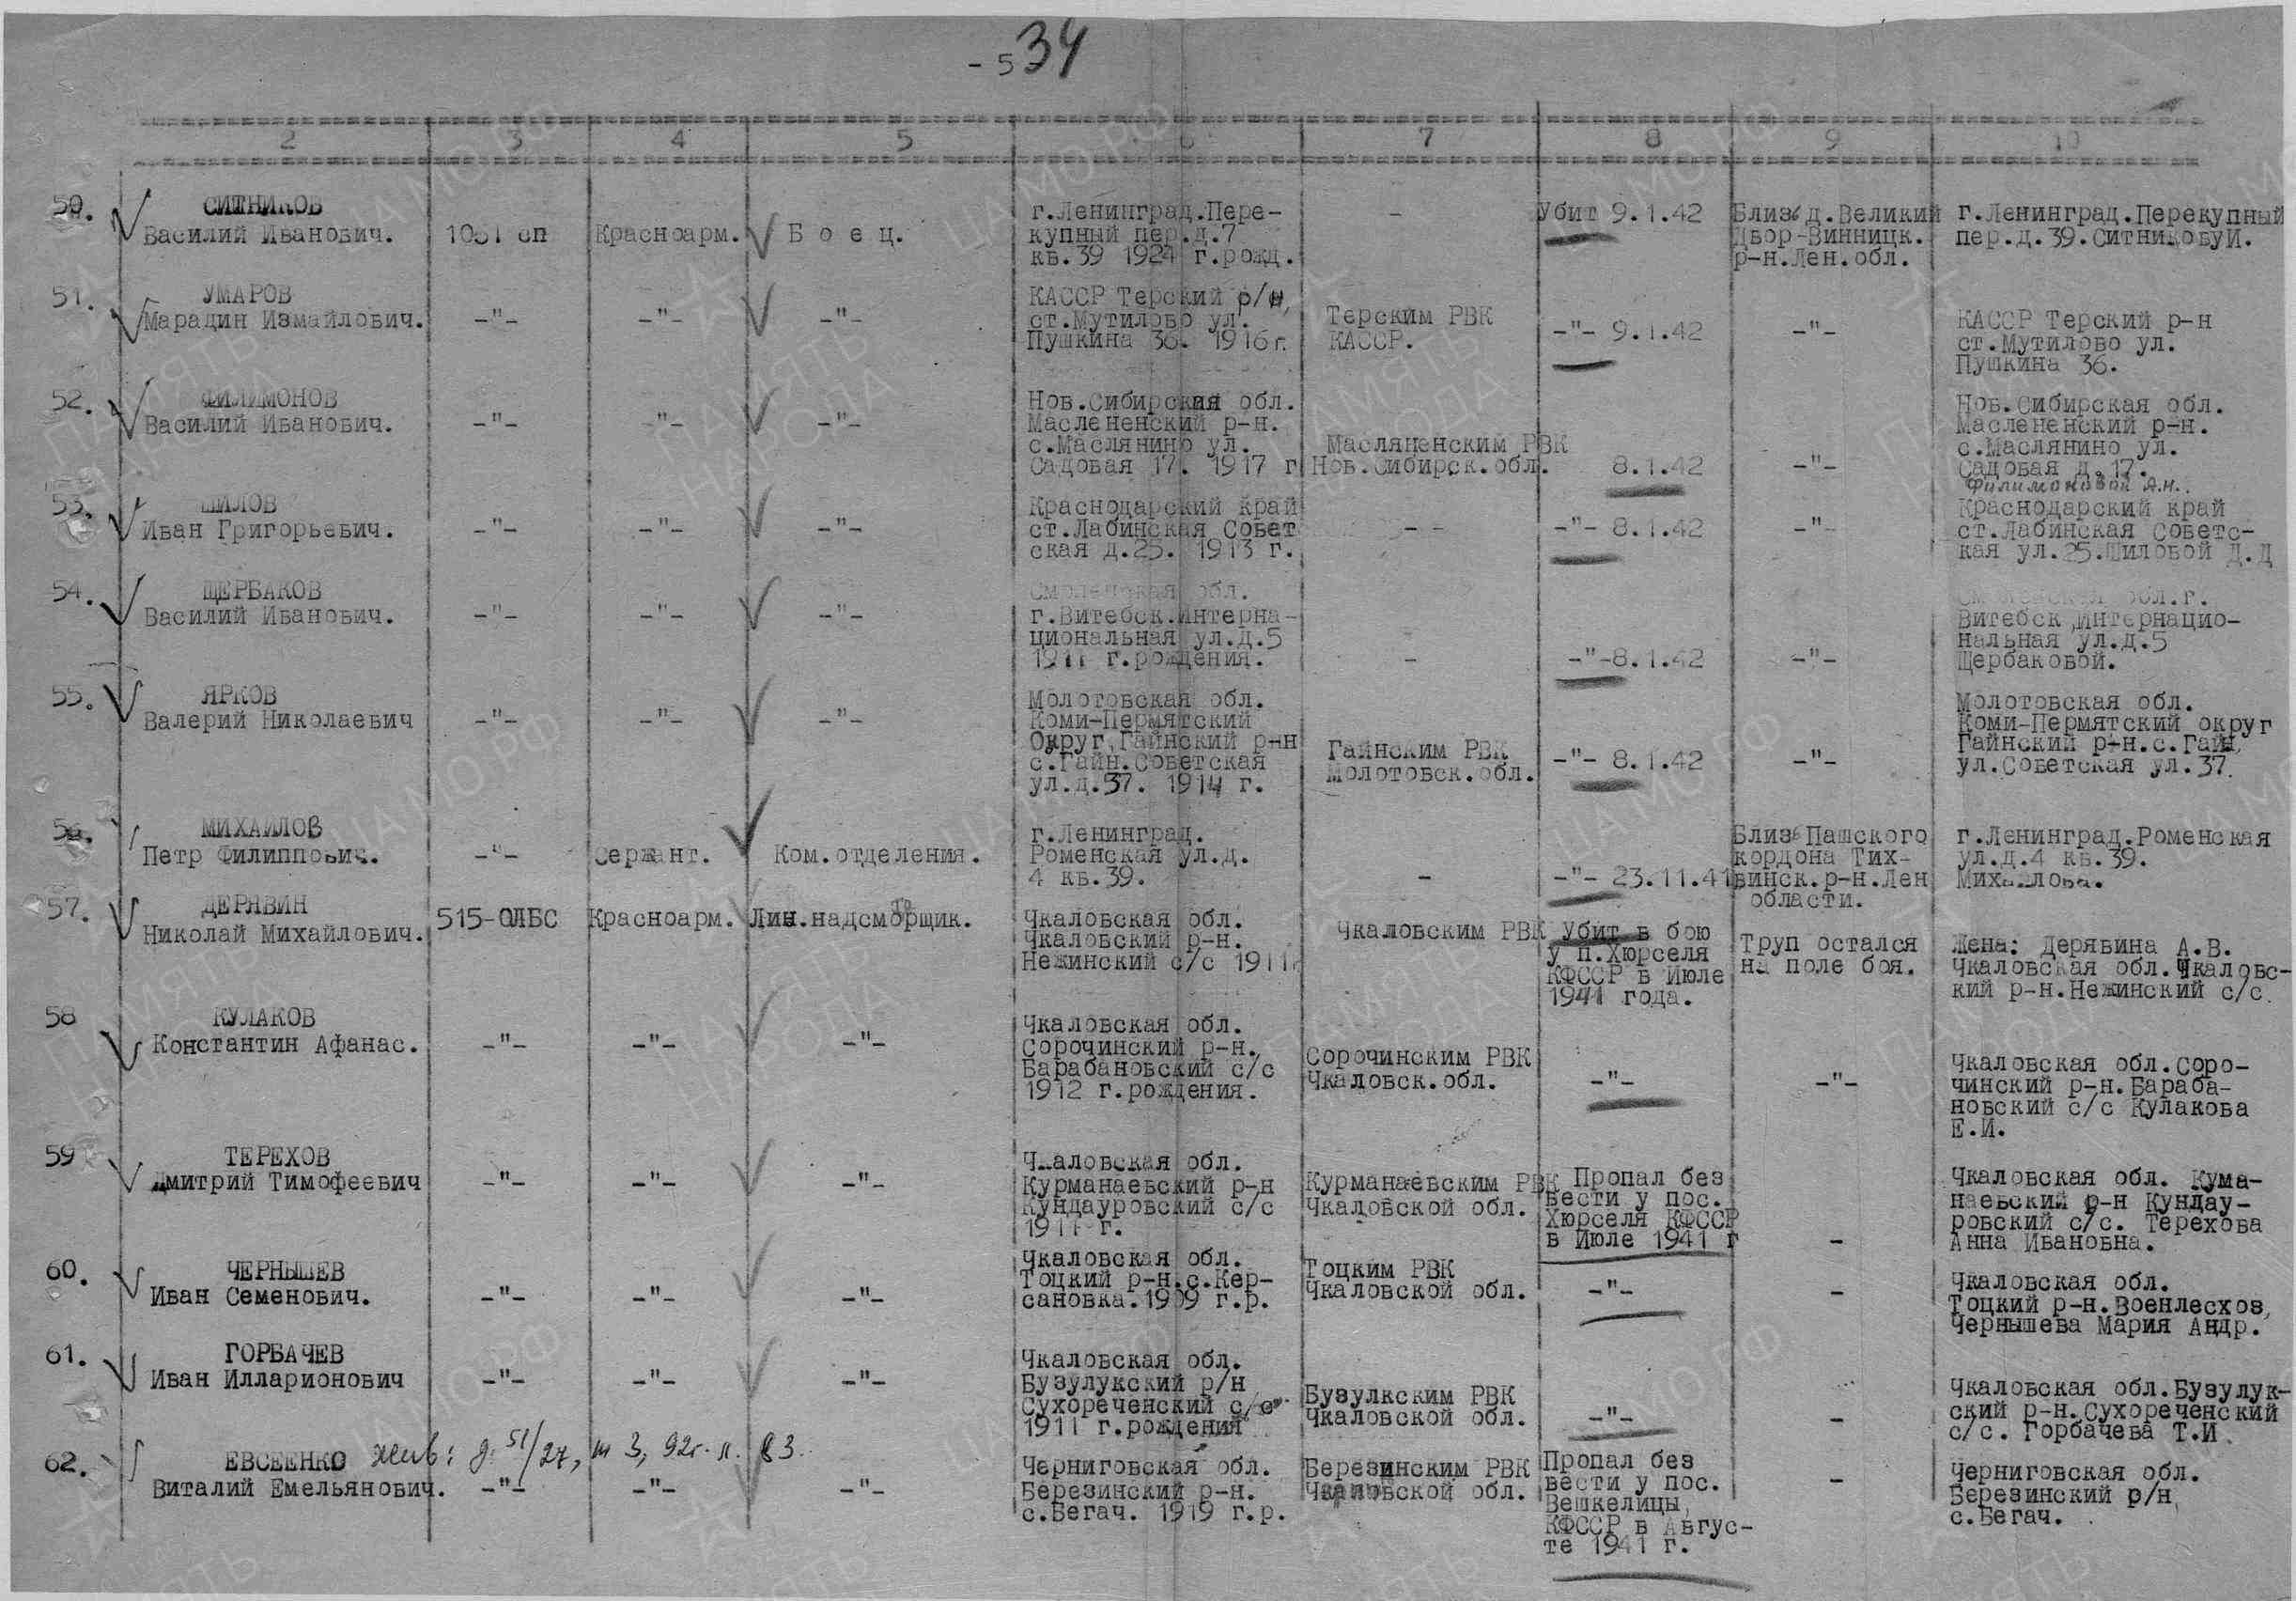 -5 34
2 3 4 5 6 7 8 9 10
50. СИТНИКОВ
Василий Иванович. 1061 сп Красноарм. Б о е ц.
г.Ленинград.Пере-
купный пер.д.7
кв.39 1924 г.рожд.
-
Убит 9.1.42
Близ д.Великий
Двор-Винницк.
р-н.Лен.обл.
г.Ленинград.Перекупный
пер.д.39.Ситникову И.
51. УМАРОВ
Марадин Измайлович. -"- -"- -"-
КАССР Терский р/н,
ст.Мутилово ул.
Пушкина 36. 1916г.
Терским РВК
КАССР.
-"- 9.1.42
-"-
КАССР Терский р-н
ст.Мутилово ул.
Пушкина 36.
52. ФИЛИМОНОВ
Василий Иванович. -"- -"- -"-
Нов.Сибирская обл.
Маслененский р-н.
с.Маслянино ул.
Садовая 17. 1917 г
Масляненским РВК
Нов.Сибирск.обл.
8.1.42
-"-
Нов.Сибирская обл.
Маслененский р-н.
с.Маслянино ул.
Садовая д.17.
Филимоновой А.Н.
53. ШИЛОВ
Иван Григорьевич. -"- -"- -"-
Краснодарский край
ст.Лабинская Совет
ская д.25. 1913 г.
- -
-"- 8.1.42
-"-
Краснодарский край
ст.Лабинская Советс-
кая ул.25.Шиловой Д.Д
54. ЩЕРБАКОВ
Василий Иванович. -"- -"- -"-
Смоленская обл.
г.Витебск.Интерна-
циональная ул.д.5
1911 г.рождения.
-
-"-8.1.42
-"-
Смоленская обл.г.
Витебск,Интернацио-
нальная ул.д.5
Щербаковой.
55. ЯРКОВ
Валерий Николаевич -"- -"- -"-
Молотовская обл.
Коми-Пермятский
Округ,Гайнский р-н
с.Гайн.Советская
ул.д.37. 1914 г.
Гайнским РВК
Молотовск.обл.
-"- 8.1.42
-"-
Молотовская обл.
Коми-Пермятский округ
Гайнский р-н.с.Гайн,
ул.Советская ул.37.
56. МИХАЙЛОВ
Петр Филиппович. -"- Сержант. Ком.отделения.
г.Ленинград.
Роменская ул.д.
4 кв.39.
-
-"- 23.11.41
Близ Пашского
кордона Тих-
винск.р-н.Лен
области.
г.Ленинград.Роменская
ул.д.4 кв.39.
Михайлова.
57. ДЕРЯВИН
Николай Михайлович. 515-ОЛБС Красноарм. Лин.надсморщик.
Чкаловская обл.
Чкаловский р-н.
Нежинский с/с 1911г
Чкаловским РВК
Убит в бою
у п.Хюрселя
КФССР в Июле
1941 года.
Труп остался
на поле боя.
Жена: Дерявина А.В.
Чкаловская обл.Чкаловс-
кий р-н.Нежинский с/с.
58 КУЛАКОВ
Константин Афанас. -"- -"- -"-
Чкаловская обл.
Сорочинский р-н.
Барабановский с/с
1912 г.рождения.
Сорочинским РВК
Чкаловск.обл.
-"-
-"-
Чкаловская обл.Соро-
чинский р-н.Бараба-
новский с/с Кулакова
Е.И.
59 ТЕРЕХОВ
Дмитрий Тимофеевич -"- -"- -"-
Чкаловская обл.
Курманаевский р-н
Кундауровский с/с
1911 г.
Курманаевским РВК
Чкаловской обл.
Пропал без
вести у пос.
Хюрселя КФССР
в Июле 1941 г
-
Чкаловская обл. Кума-
наевский р-н Кундау-
ровский с/с. Терехова
Анна Ивановна.
60. ЧЕРНЫШЕВ
Иван Семенович. -"- -"- -"-
Чкаловская обл.
Тоцкий р-н.с.Кер-
сановка.1909 г.р.
Тоцким РВК
Чкаловской обл.
-"-
-
Чкаловская обл.
Тоцкий р-н.Военлесхоз,
Чернышева Мария Андр.
61. ГОРБАЧЕВ
Иван Илларионович -"- -"- -"-
Чкаловская обл.
Бузулукский р/н
Сухореченский с/с
1911 г.рождения
Бузулкским РВК
Чкаловской обл.
-"-
-
Чкаловская обл.Бузулук-
ский р-н.Сухореченский
с/с. Горбачева Т.И.
62. ЕВСЕЕНКО жив: д. 51/27, т 3, 92г. л. 83.
Виталий Емельянович. -"- -"- -"-
Черниговская обл.
Березинский р-н.
с.Бегач. 1919 г.р.
Березинским РВК
обл.
Пропал без
вести у пос.
Вешкелицы,
КФССР в Авгус-
те 1941 г.
-
Черниговская обл.
Березинский р/н,
с.Бегач.